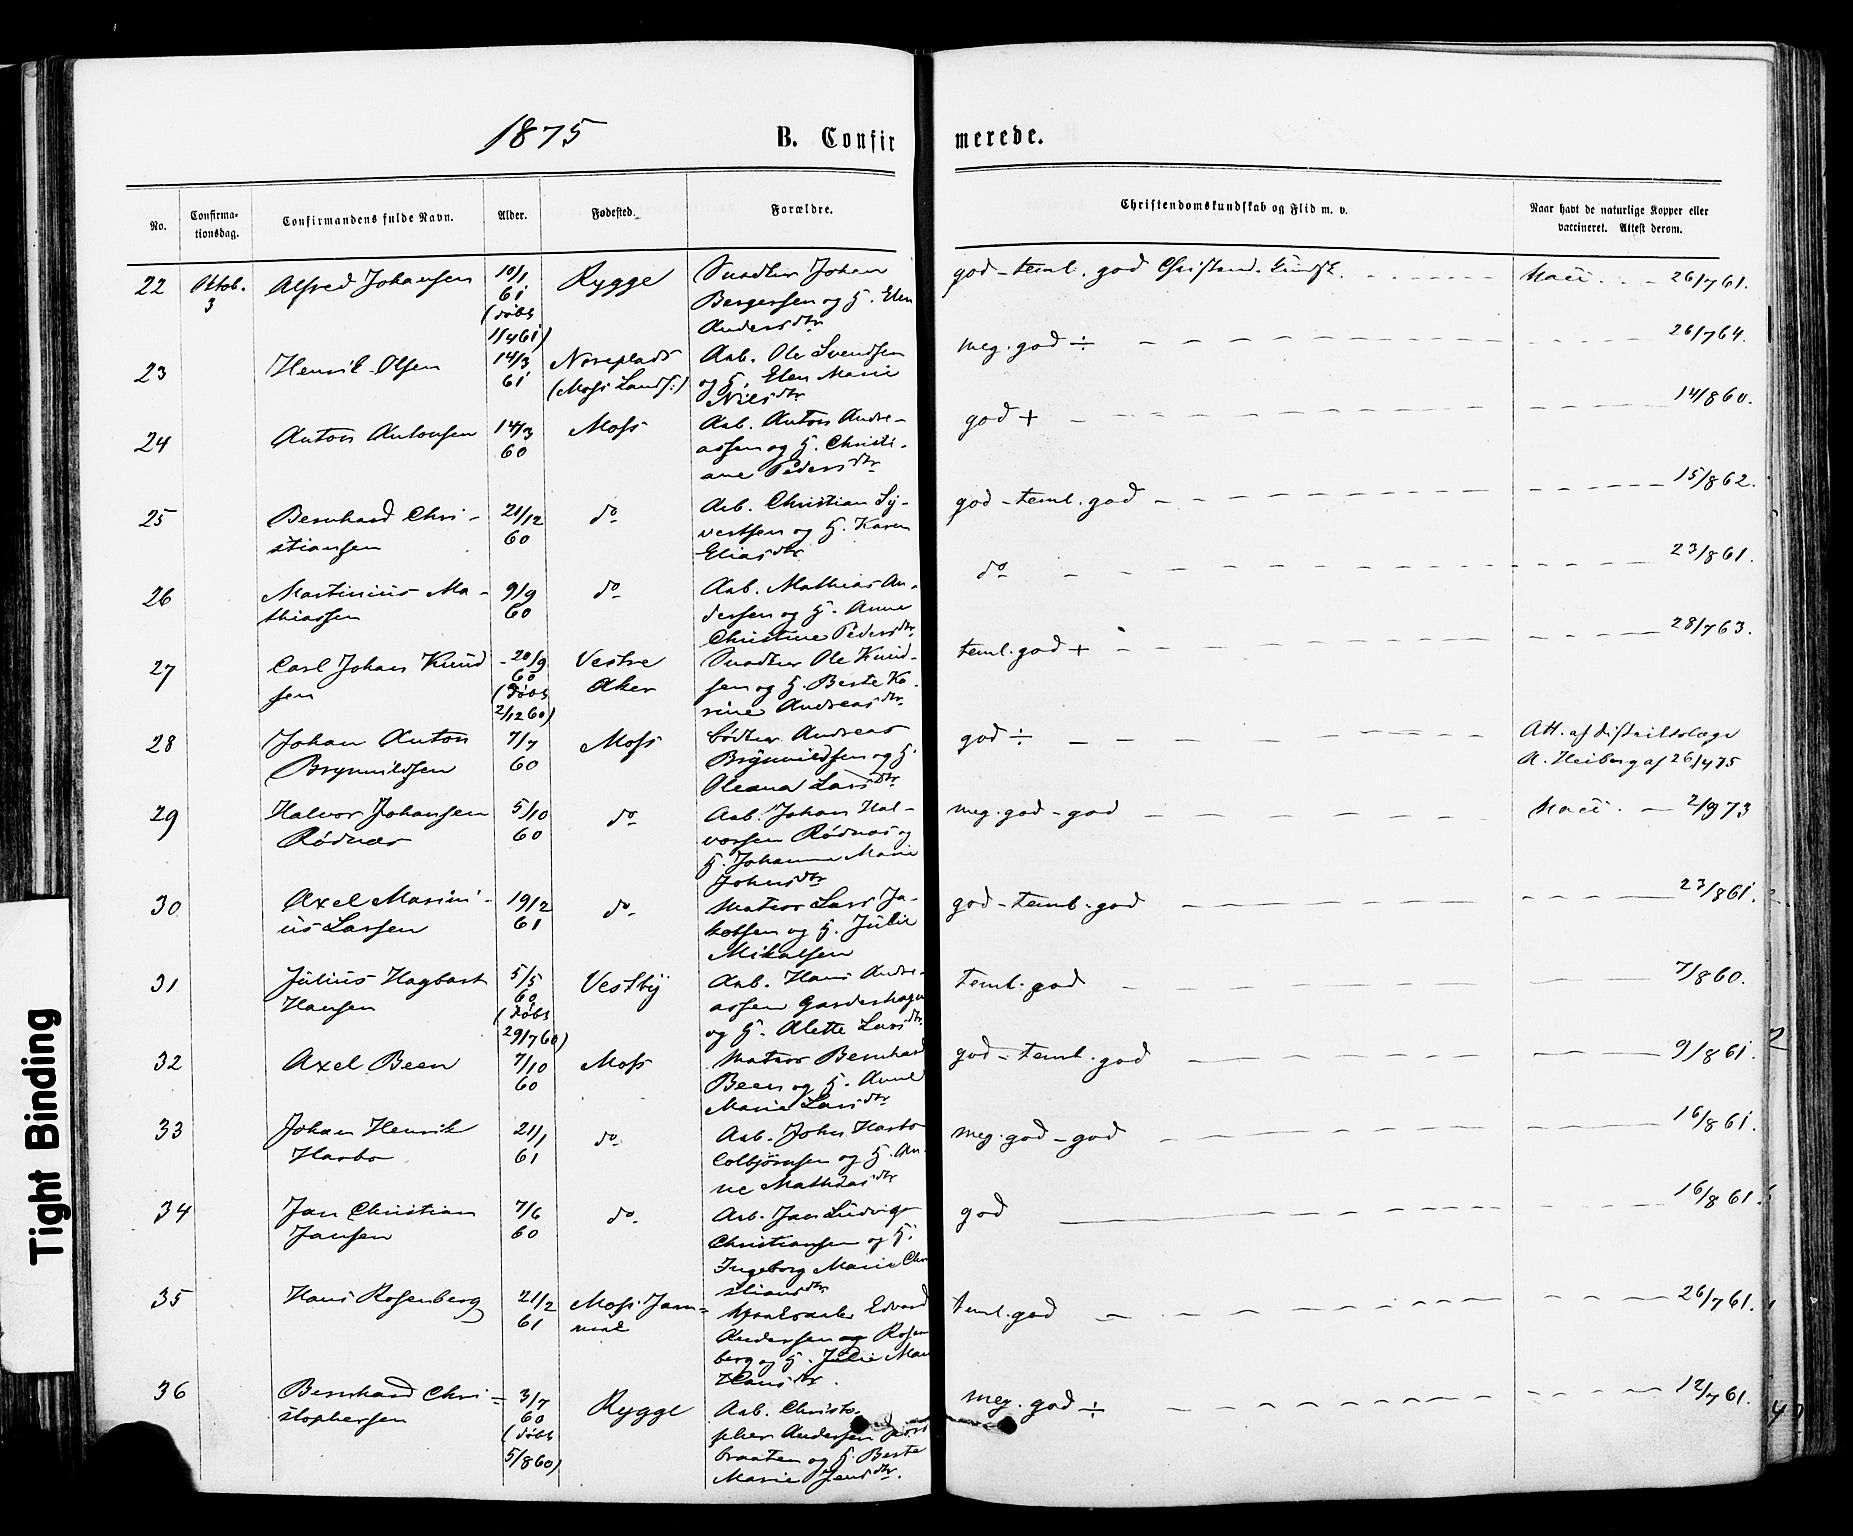 1875
B. Confirmerede.
No. Confirmationsdag. Confirmandens fulde Navn. Alder. Fødested. Forældre. Christendomskundskab og Flid m. v. Naar havt de naturlige Kopper eller vaccineret. Attest derom.
22 Oktob. 3 Alfred Johansen 10/1 61 (døbt 1/4 61) Rygge Snedker Johan Bergersen og H. Elen Andersdtr god - teml. god Christend. kundsk. Vacc. 26/7 61.
23 Henrik Olsen 14/3 61 Noreplads (Moss Lands:) Arb. Ole Svendsen og H. Elen Marie Nilsdtr meg. god ÷ 26/7 64.
24 Anton Antonsen 14/3 60 Moss Arb. Anton Andreassen og H. Christiane Pedersdtr god + 14/8 60.
25 Bernhard Christiansen 21/12 60 do Arb. Christian Syvertsen og H. Karen Eliasdtr god - teml. god 15/8 62.
26 Martinius Mathiassen 9/9 60 do Arb. Mathias Andersen og H. Anne Christine Pedersdtr do 23/8 61.
27 Carl Johan Knudsen 20/9 60 (døbt 2/12 60) Vestre Aker Snedker Ole Knudsen og H. Berte Karine Andreasdtr. teml. god + 28/7 63.
28 Johan Anton Brynnildsen 7/7 60 Moss Bødker Andreas Brynnildsen og H. Oleana Larsdtr god ÷ Att. af distriktslæge A. Heiberg af 26/4 75
29 Halvor Johansen Rødnæs 5/10 60 do Arb. Johan Halvorsen Rødnæs og H. Johanna Marie Johnsdtr meg. god - god Vacc. 2/9 73
30 Axel Marinius Larsen 19/2 61 do Matros Lars Jakobsen og H. Julie Mikalsen god - teml. god 23/8 61.
31 Julius Hagbart Hansen 5/5 60 (døbt 29/7 60) Vestby Arb. Hans Andreassen Garderhagen og H. Alette Larsdtr teml. god 7/8 60.
32 Axel Been 7/10 60 Moss Matros Bernhard Been og H. Anne Marie Larsdtr god - teml. god 9/8 61.
33 Johan Henrik Harbo 21/1 61 do Arb. John Harbo Colbjørnsen og H. Anne Mathiasdtr meg. god - god 16/8 61.
34 Jan Christian Jansen 7/6 60 do Arb. Jan Ludvig Christiansen og H. Ingeborg Marie Christiansdtr god 16/8 61.
35 Hans Rosenberg 21/2 61 Moss Jernverk Edvard Andersen Rosenberg og H. Julie Marie Hansdtr. teml. god 26/7 61.
36 Bernhard Christophersen 3/7 60 (døbt 5/8 60) Rygge Arb. Christopher Andersen og H. Berte Marie Jensdtr. meg. god ÷ 12/7 61.
Tight Binding